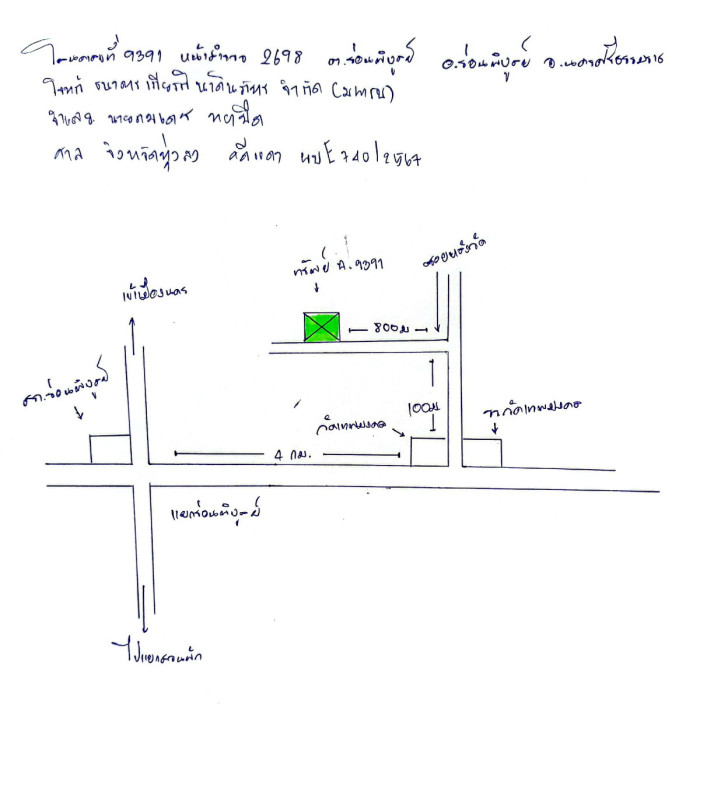 โฉนดเลขที่ 9391 หน้าสำรวจ 2698 ต.ร่อนพิบูลย์ อ.ร่อนพิบูลย์ จ.นครศรีธรรมราช
โจทก์ ธนาคารเกียรตินาคินภัทร จำกัด (มหาชน)
จำเลย
ศาล จังหวัดทุ่งสง คดีแดง ผบE740/2567
ทรัพย์ ฉ.9391
เข้าเมืองนคร
800ม
สภ.ร่อนพิบูลย์
100ม
วัดเทพนมเชือด
ร.ร.วัดเทพนมเชือด
4 กม.
แยกร่อนพิบูลย์
ไปแยกสวนผัก